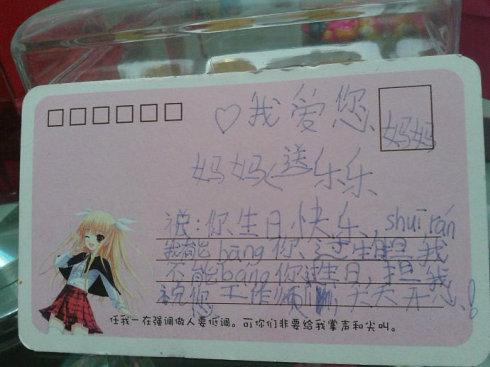 ♡我爱您
妈妈
妈妈送乐乐
祝:你生日快乐、shuī rán
我能bāng你过生日我
不能bāng你过生日,但我
祝您工作顺利,天天开心!
任我一在强调做人要低调。可你们非要给我掌声和尖叫。